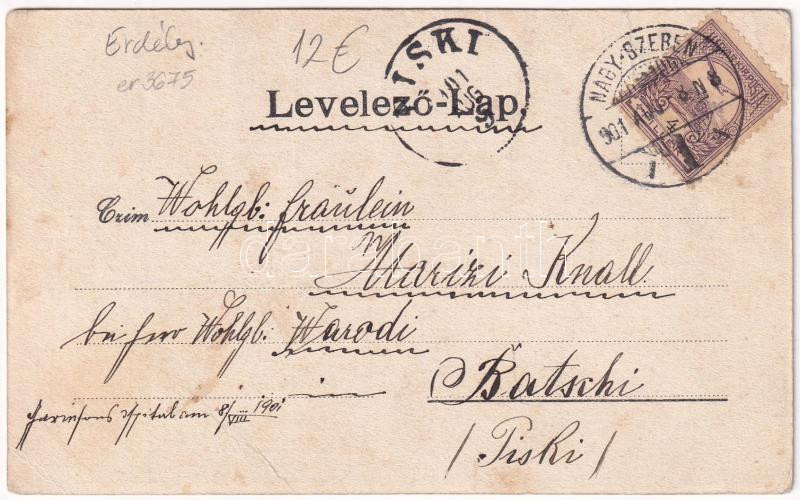 Erdély.
er 3675
12€
PISKI
901 AUG 9
NAGY-SZEBEN
901 AUG 8
Levelező-Lap.
Czim Wohlgb: Fräulein
Marizi Knall
bei Herr Wohlgb: Warodi
in
Batschi
/Piski/
spital am 8/VIII 1901
darabanth